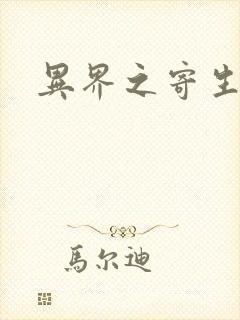 異界之寄生
馬尔迪